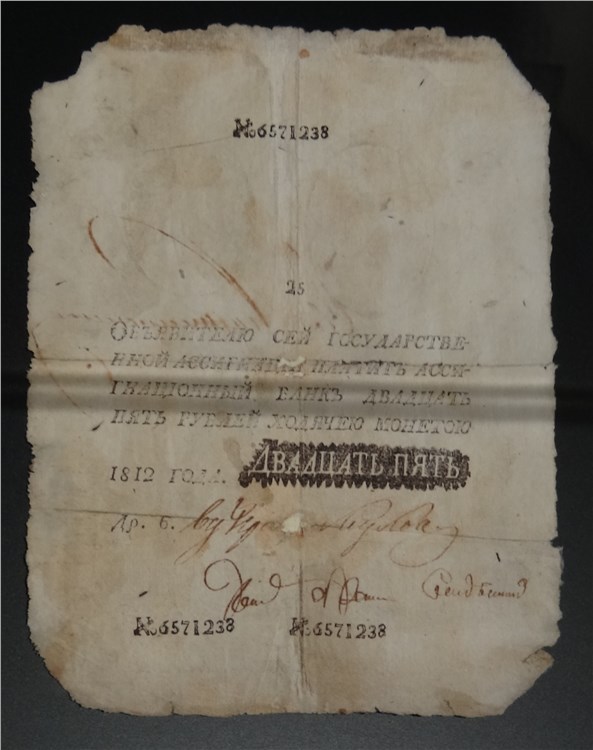 №6571238
25
ОБЪЯВИТЕЛЮ СЕЙ ГОСУДАРСТВЕ-
ННОЙ АССИГНАЦIИ ПЛАТИТЪ АССИ-
ГНАЦIОННЫЙ БАНКЪ ДВАДЦАТЬ
ПЯТЬ РУБЛЕЙ ХОДЯЧЕЮ МОНЕТОЮ
1812 ГОДА. ДВАДЦАТЬ ПЯТЬ
№6571238 №6571238